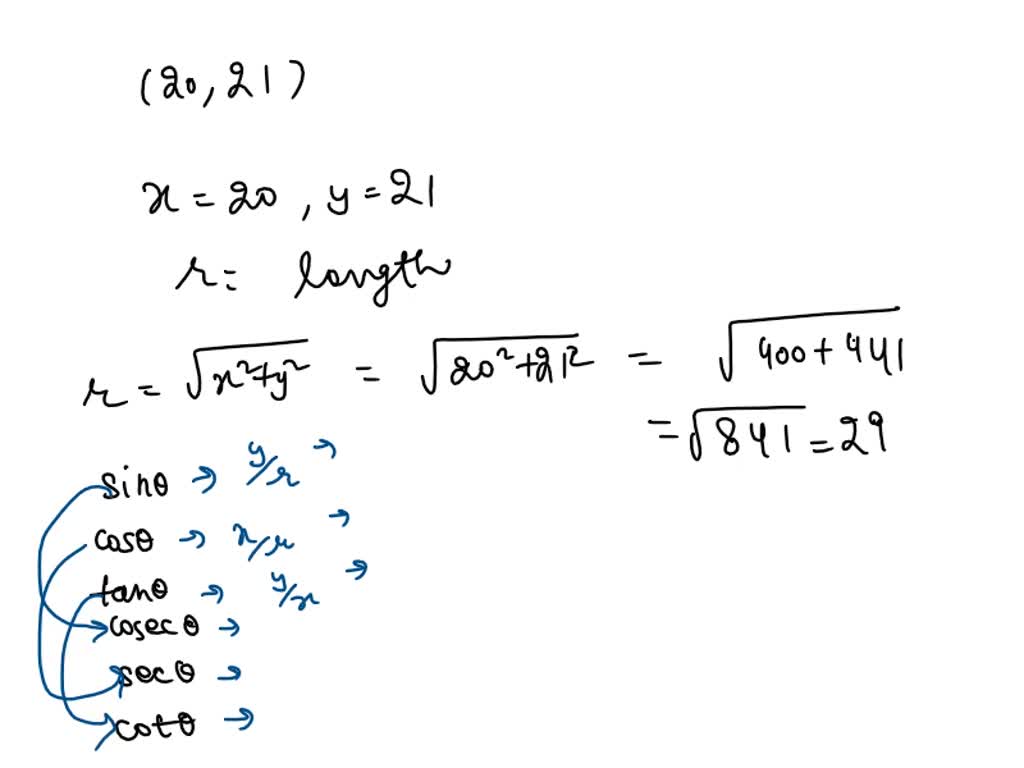 (20, 21)
x = 20 , y = 21
r = length
r = √x²+y² = √20²+21² = √400+441
= √841 = 29
sinθ → y/r →
cosθ → x/r →
tanθ → y/x →
cosec θ →
secθ →
cotθ →